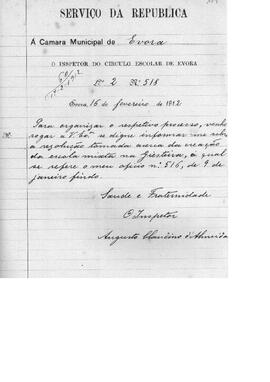 SERVIÇO DA REPUBLICA
Á Camara Municipal de Evora
O INSPETOR DO CIRCULO ESCOLAR DE EVORA
Nº 2 Nº 518
Evora, 16 de fevereiro de 1912
Para organizar o respetivo processo, venho
rogar a V. Exª se digne informar-me sobre
a resolução tomada acerca da creação
da escola mixta na Giesteira, a qual
se refere o meu oficio nº 516, de 9 de
janeiro findo.
Saude e Fraternidade
O Inspetor
Augusto Claudino d'Almeida